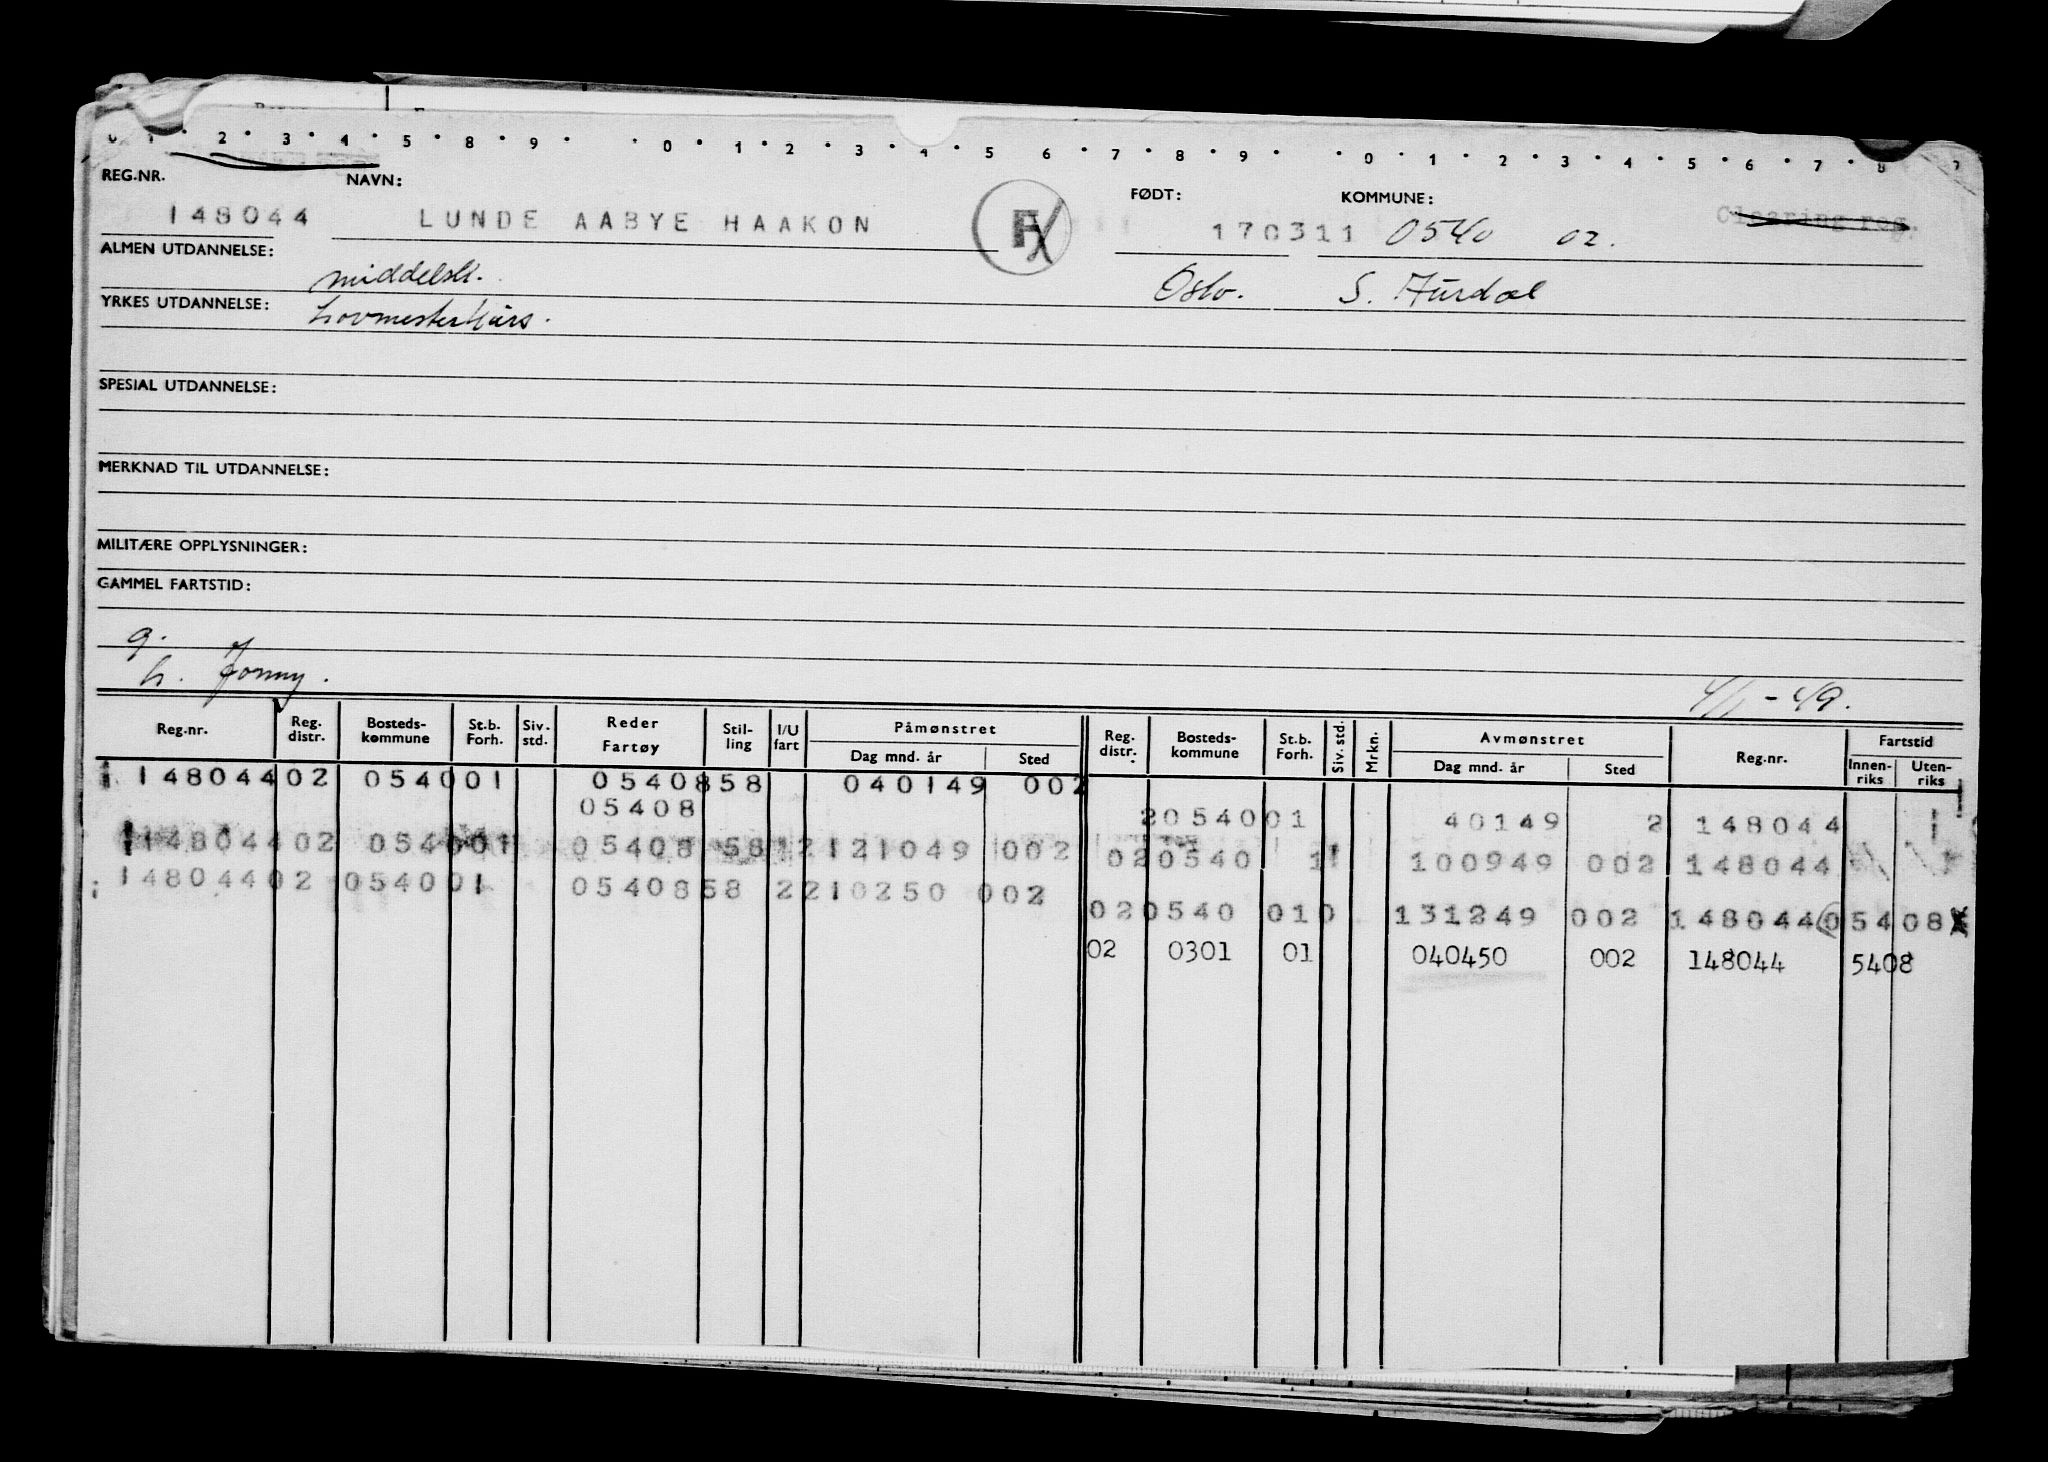 2 3 4 5 8 9 0 1 2 3 4 5 6 7 8 9 0 1 2 3 4 5 6 7 8
REG.NR. NAVN: FØDT: KOMMUNE:
148044 LUNDE AABYE HAAKON F 170311 0540 02. Clearing reg.
ALMEN UTDANNELSE: middelsk. Oslo. S. Aurdal
YRKES UTDANNELSE: Hovmesterkurs.
SPESIAL UTDANNELSE:
MERKNAD TIL UTDANNELSE:
MILITÆRE OPPLYSNINGER:
GAMMEL FARTSTID:
g.
h. Jonny. 4/1-49.
Reg.nr. Reg. distr. Bosteds-kommune St.b. Forh. Siv. std. Reder Fartøy Stil-ling I/U fart Påmønstret Dag mnd. år Sted Reg. distr. Bosteds-kommune St.b. Forh. Siv. std. Mrkn. Avmønstret Dag mnd. år Sted Reg.nr. Fartstid Innen-riks Uten-riks
148044 02 0540 01 05408 58 040149 002
05408 2 0540 01 40149 2 148044
148044 02 0540 01 05408 58 12 121049 002 02 0540 1 100949 002 148044
148044 02 0540 01 05408 58 2 210250 002
02 0540 010 131249 002 148044 05408
02 0301 01 040450 002 148044 5408